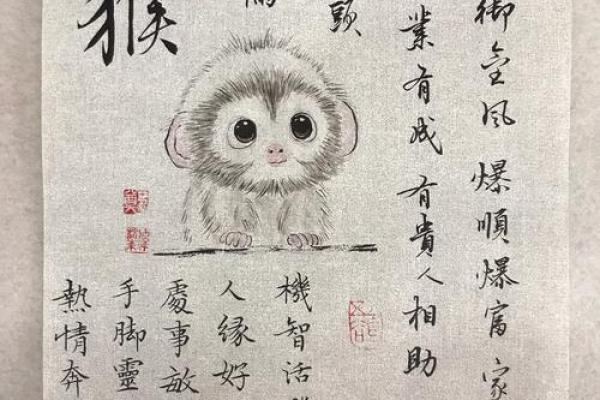 御金风爆順爆富家
業有成有貴人相助
頭
猴
機智活
人緣好
處事敏
手脚靈
熱情奔